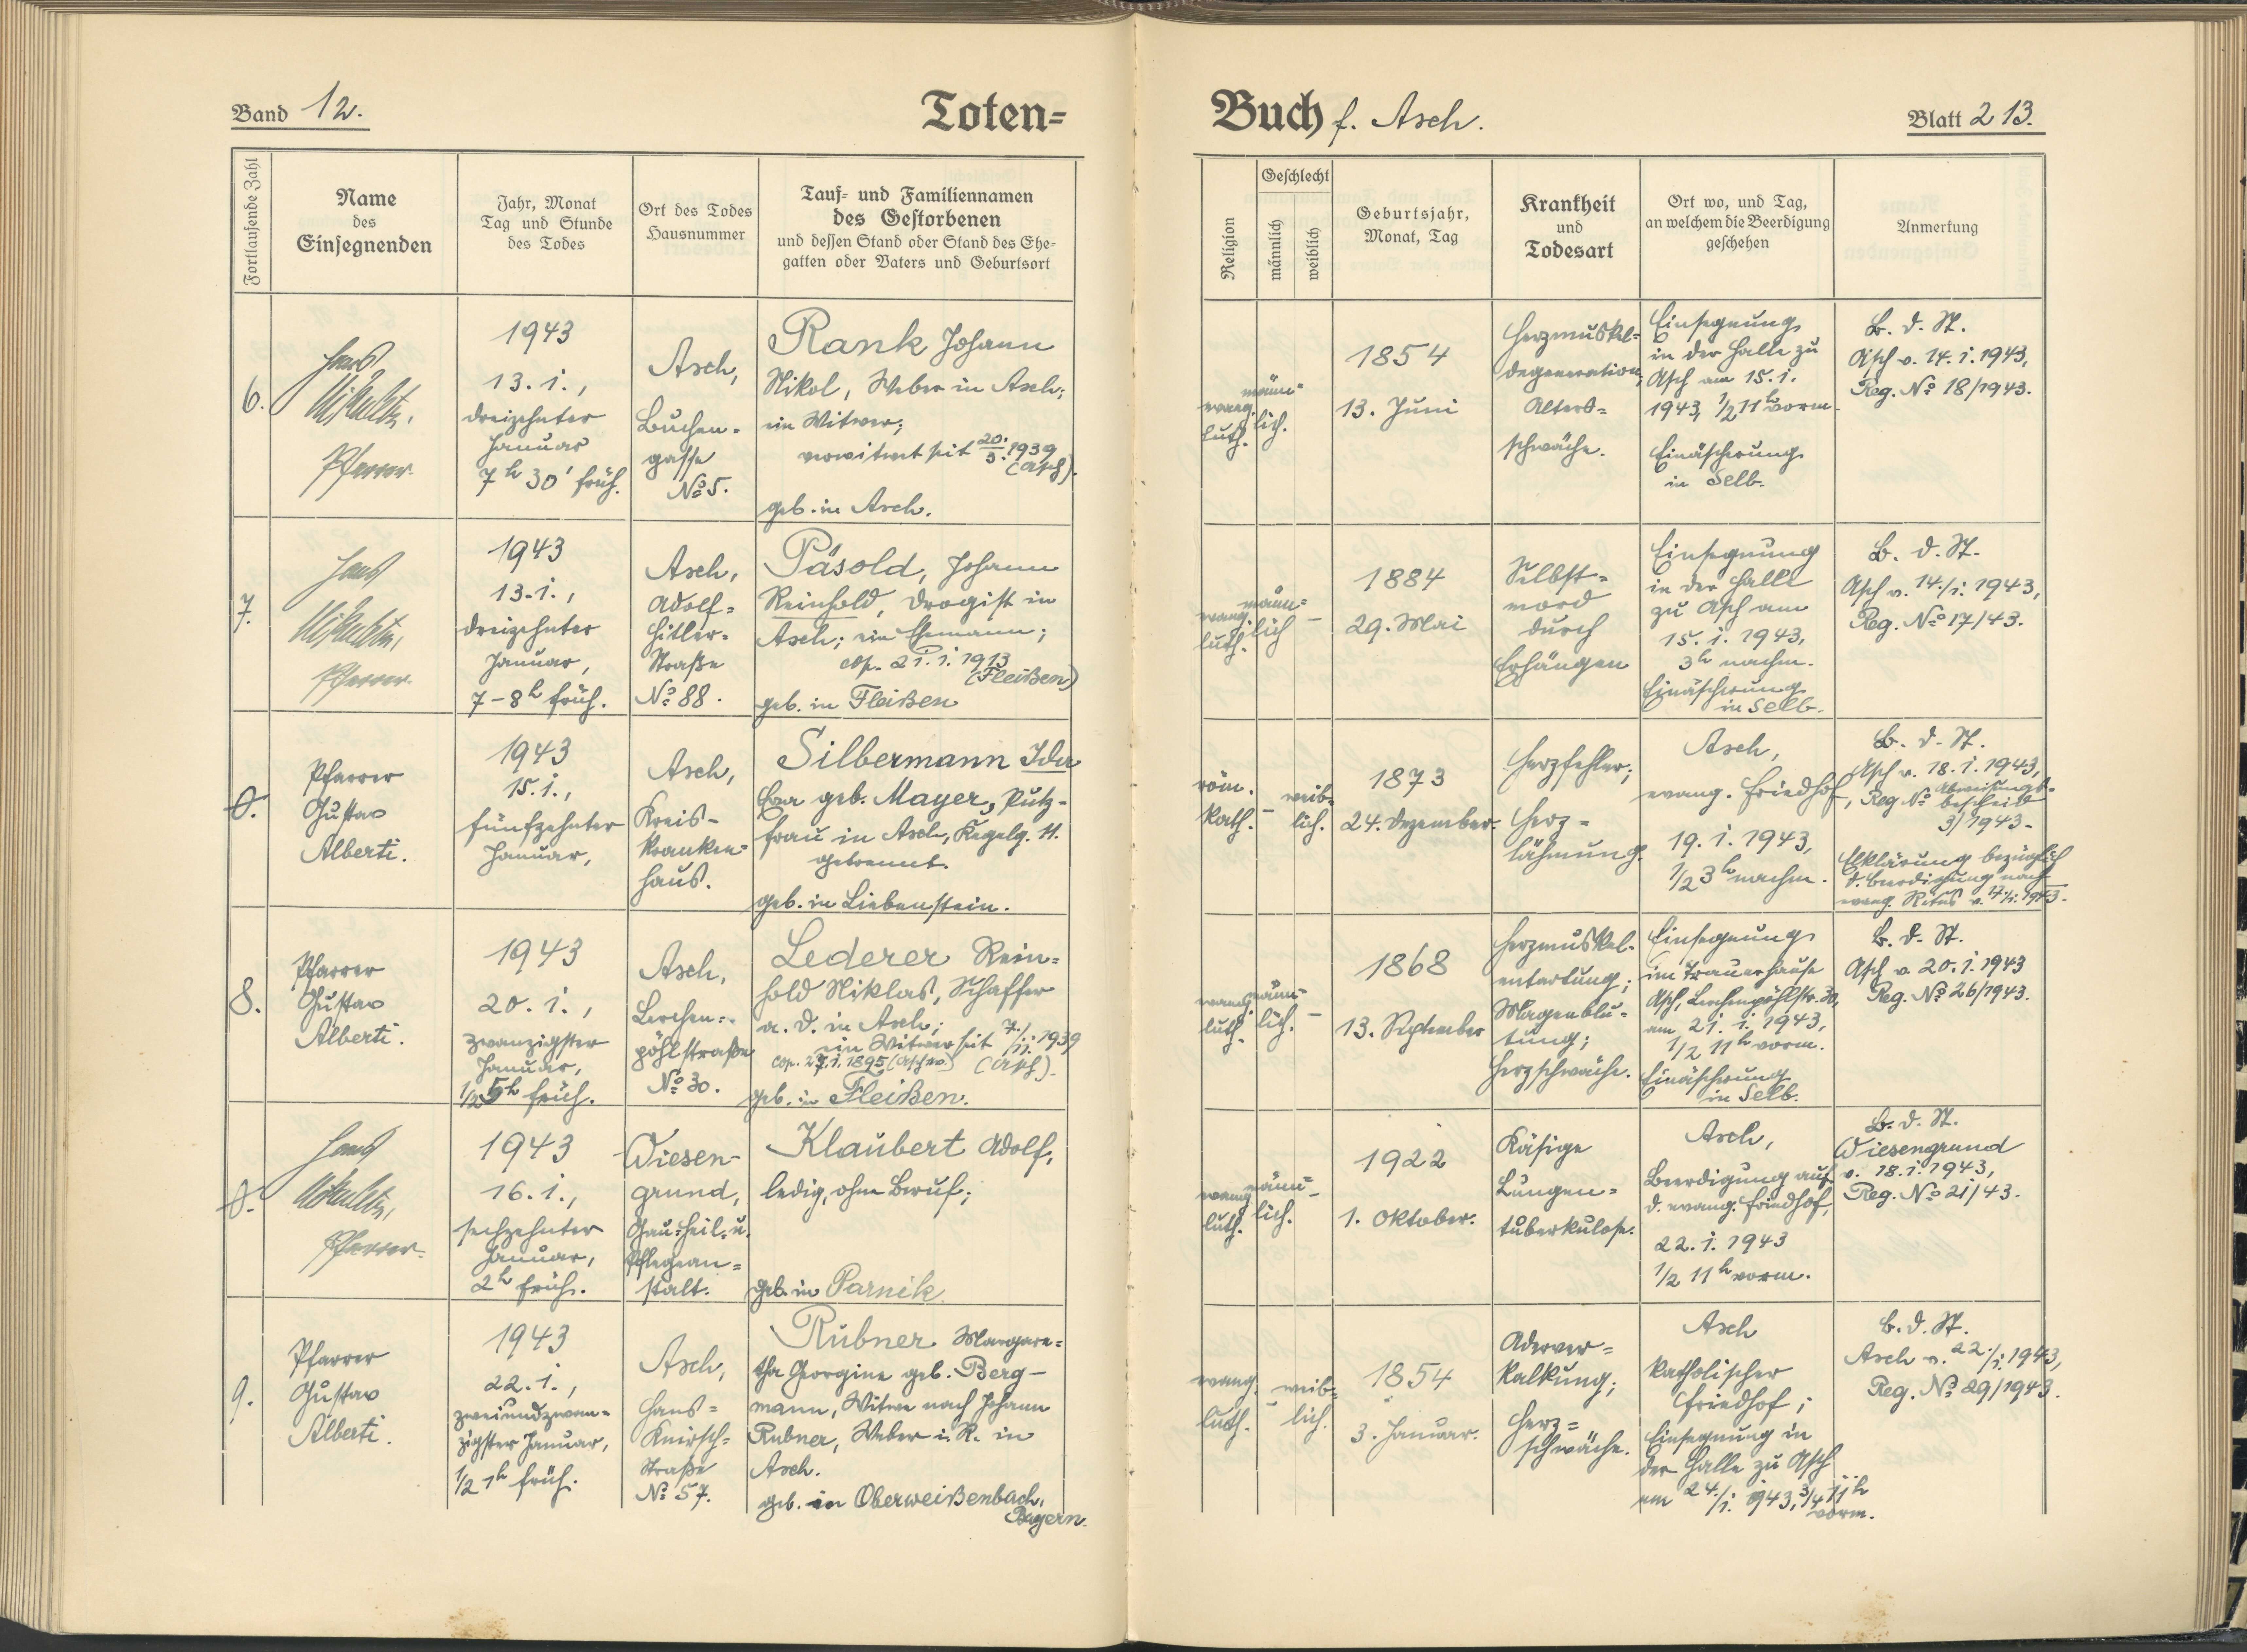 Band 12.
Toten=
Fortlaufende Zahl
Name
des
Einsegnenden
Jahr, Monat
Tag und Stunde
des Todes
Ort des Todes
Hausnummer
Tauf= und Familiennamen
des Gestorbenen
und dessen Stand oder Stand des Ehe=
gatten oder Vaters und Geburtsort
6.
Hans
Pfarrer.
1943
13.i.,
dreizehnter
Januar
7h 30' früh.
Asch,
Buchen=
gasse
No 5.
Rank Johann
Nikol, Weber in Asch;
ein Witwer;
verwitwet seit 20./5. 1939
(Asch).
geb. in Asch.
7.
Hans
Pfarrer.
1943
13.i.,
dreizehnter
Januar,
7-8h früh.
Asch,
Adolf=
Hitler=
Straße
No 88.
Päsold, Johann
Reinhold, Drogist in
Asch; ein Ehemann;
cop. 21.i.1913
(Fleißen)
geb. in Fleißen
0.
Pfarrer
Gustav
Alberti.
1943
15.i.,
fünfzehnter
Januar,
Asch,
Kreis-
kranken=
haus.
Silbermann Ida
geb. Mayer, Putz-
frau in Asch, Kegelg. 11.
getrennt.
geb. in Liebenstein.
8.
Pfarrer
Gustav
Alberti.
1943
20.i.,
zwanzigster
Januar,
1/2 5h früh.
Asch,
Lerchen=
pöhlstraße
No 30.
Lederer Rein=
hold Niklas, Schaffer
a. D. in Asch;
ein Witwer seit 7./11. 1939
cop. 27.i.1895 (Asch). (Asch).
geb. in Fleißen.
0.
Hans
Pfarrer.
1943
16.i.,
sechzehnter
Januar,
2h früh.
Wiesen-
grund,
Gau=Heil= u.
Pflegean=
stalt.
Klaubert Adolf,
ledig, ohne Beruf;
geb. in Parnik
9.
Pfarrer
Gustav
Alberti.
1943
22.i.,
zweiundzwan=
zigster Januar,
1/2 1h früh.
Asch,
Hans=
Knirsch=
Straße
No 57.
Rubner Margare=
tha Georgine geb. Berg-
mann, Witwe nach Johann
Rubner, Weber i. R. in
Asch.
geb. in Oberweißenbach,
Bayern.
Buch f. Asch.
Blatt 213.
Religion
Geschlecht
männlich
weiblich
Geburtsjahr,
Monat, Tag
Krankheit
und
Todesart
Ort wo, und Tag,
an welchem die Beerdigung
geschehen
Anmerkung
evang.
luth.
männ=
lich.
1854
13. Juni
Herzmuskel=
degeneration;
Alters=
schwäche.
Einsegnung
in der Halle zu
Asch am 15.i.
1943, 1/2 11h vorm.
Einäscherung
in Selb.
B. d. St.
Asch v. 14.i.1943,
Reg. No 18/1943.
evang.
luth.
männ=
lich
–
1884
29. Mai
Selbst=
mord
durch
Erhängen
Einsegnung
in der Halle
zu Asch am
15.i.1943,
3h nachm.
Einäscherung
in Selb.
B. d. St.
Asch v. 14./i. 1943,
Reg. No 17/43.
röm.
kath.
–
weib=
lich.
1873
24. Dezember.
Herzfehler;
Herz=
lähmung.
Asch,
evang. Friedhof,
19.i.1943,
1/2 3h nachm.
B. d. St.
Asch v. 18.i.1943,
Reg. No Abweisungs-
bescheid
3/1943-
Erklärung bezüglich
d. Beerdigung nach
evang. Ritus v. 17./i. 1943.
evang.
luth.
männ=
lich.
–
1868
13. September
Herzmuskel-
entartung;
Magenblu=
tung;
Herzschwäche.
Einsegnung
im Trauerhause
Asch, Lerchenpöhlstr. 30,
am 21.i.1943,
1/2 11h vorm.
Einäscherung
in Selb.
B. d. St.
Asch v. 20.i.1943
Reg. No 26/1943.
evang.
luth.
männ=
lich.
–
1922
1. Oktober.
Käsige
Lungen=
tuberkulose.
Asch,
Beerdigung auf
d. evang. Friedhof,
22.i.1943
1/2 11h vorm.
B. d. St.
Wiesengrund
v. 18.i.1943,
Reg. No 21/43.
evang.
luth.
–
weib=
lich.
1854
3. Januar.
Aderver=
kalkung;
Herz=
schwäche.
Asch
katholischer
Friedhof;
Einsegnung in
der Halle zu Asch
am 24./i. 1943, 3/4 11h
vorm.
B. d. St.
Asch v. 22./i. 1943,
Reg. No 29/1943.